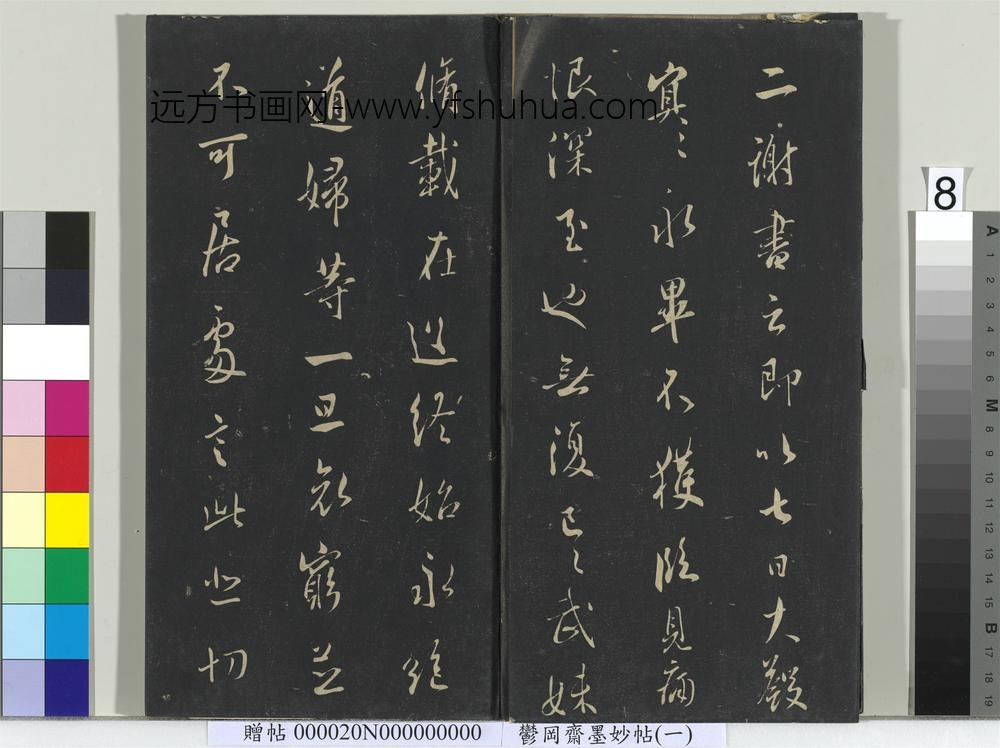 二謝書云即以七日大斂
冥〻永畢不獲臨見痛
恨深至也無復已〻武妹
脩載在遐終始永絕
道婦等一旦哀窮並
不可居處言此悲切
远方书画网-www.yfshuhua.com
8
A 1 2 3 4 5 6 M 8 9 10 11 12 13 14 15 B 17 18 19
贈帖 000020N000000000 鬱岡齋墨妙帖(一)